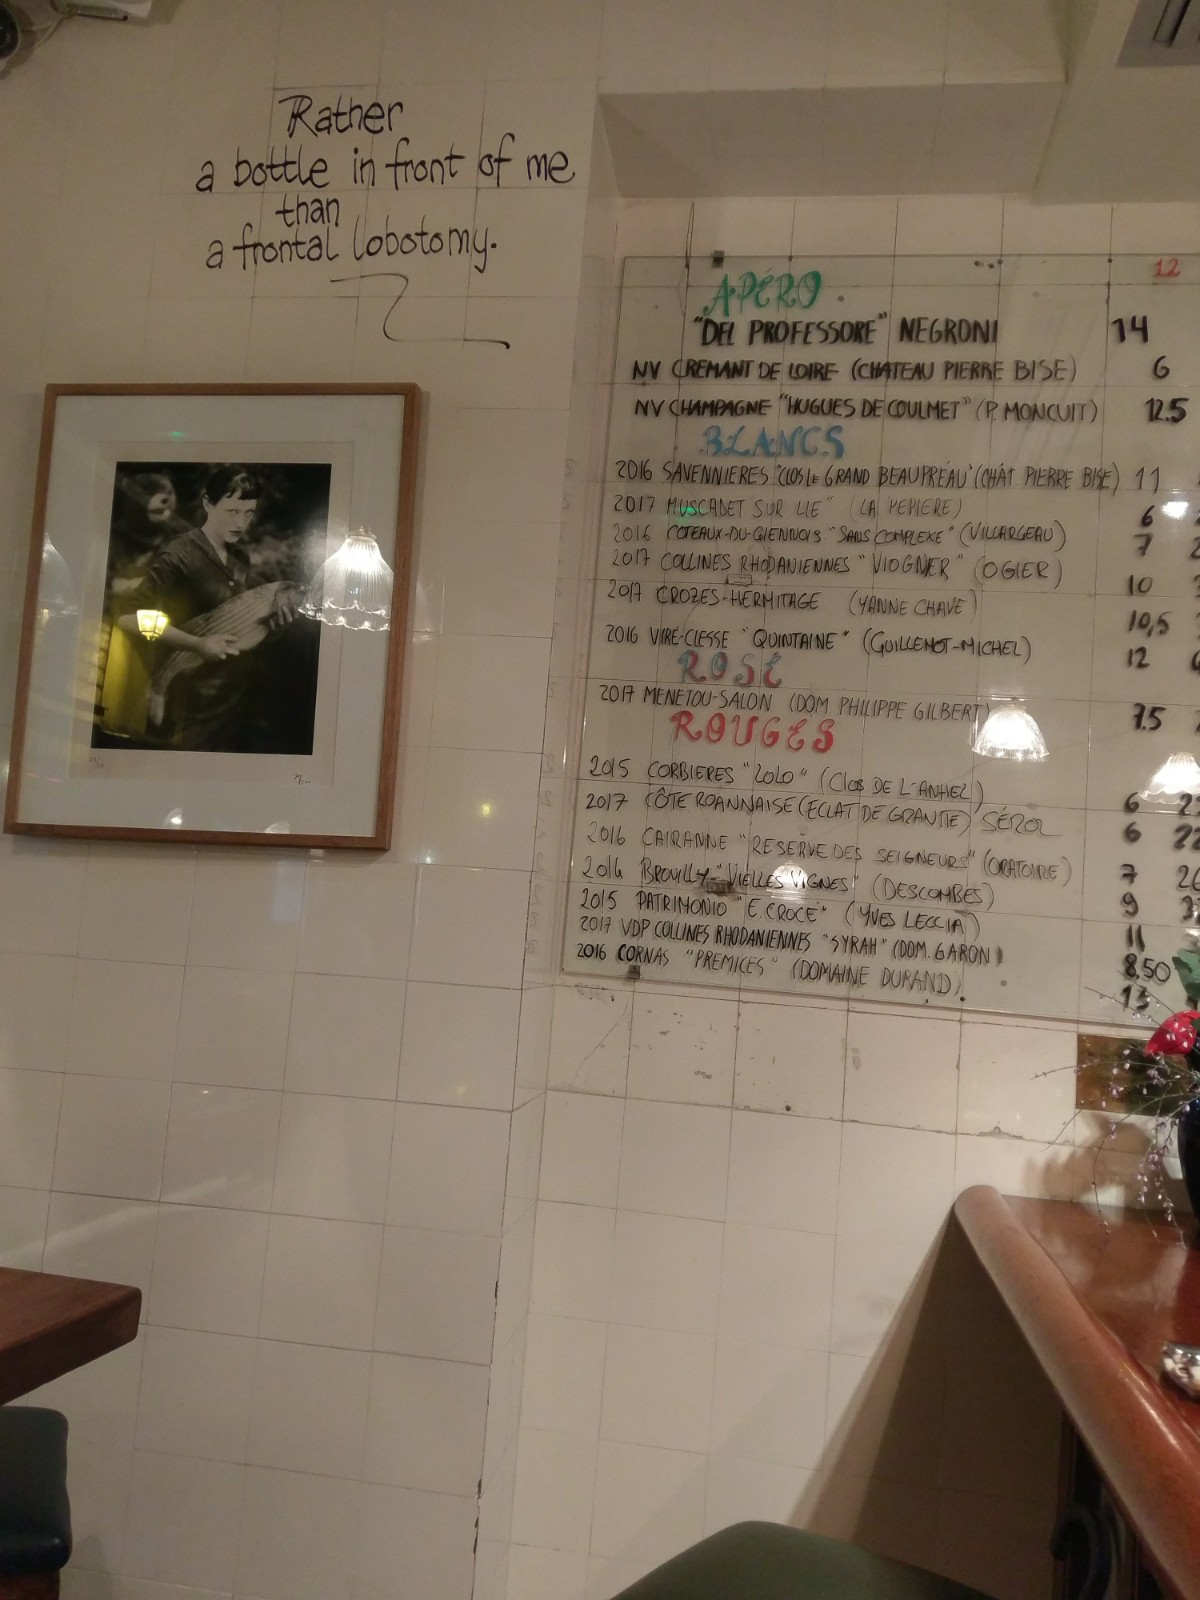 Rather
a bottle in front of me
than
a frontal lobotomy.
12
APÉRO
"DEL PROFESSORE" NEGRONI 14
NV CREMANT DE LOIRE (CHATEAU PIERRE BISE) 6
NV CHAMPAGNE "HUGUES DE COULMET" (P. MONCUIT) 12.5
BLANCS
2016 SAVENNIERES "CLOS LE GRAND BEAUPRÉAU" (CHÂT. PIERRE BISE) 11
2017 MUSCADET SUR LIE" (LA PEPIERE) 6
2016 COTEAUX-DU-GIENNOIS "SANS COMPLEXE" (VILLARGEAU) 7
2017 COLLINES RHODANIENNES "VIOGNER" (OGIER) 10
2017 CROZES-HERMITAGE (YANNE CHAVE) 10,5
2016 VIRE-CLESSE "QUINTAINE" (GUILLEMOT-MICHEL) 12
ROSÉ
2017 MENETOU-SALON (DOM PHILIPPE GILBERT) 7.5
ROUGES
2015 CORBIERES "LOLO" (CLOS DE L'ANHEL) 6
2017 CÔTE ROANNAISE (ECLAT DE GRANITE) SÉROL 6 22
2016 CAIRANNE "RESERVE DES SEIGNEURS" (ORATOIRE) 7
2016 BROUILLY "VIELLES VIGNES" (DESCOMBES) 9
2015 PATRIMONIO "E. CROCE" (YVES LECCIA) 11
2017 VDP COLLINES RHODANIENNES "SYRAH" (DOM. GARON) 8.50
2016 CORNAS "PREMICES" (DOMAINE DURAND) 13